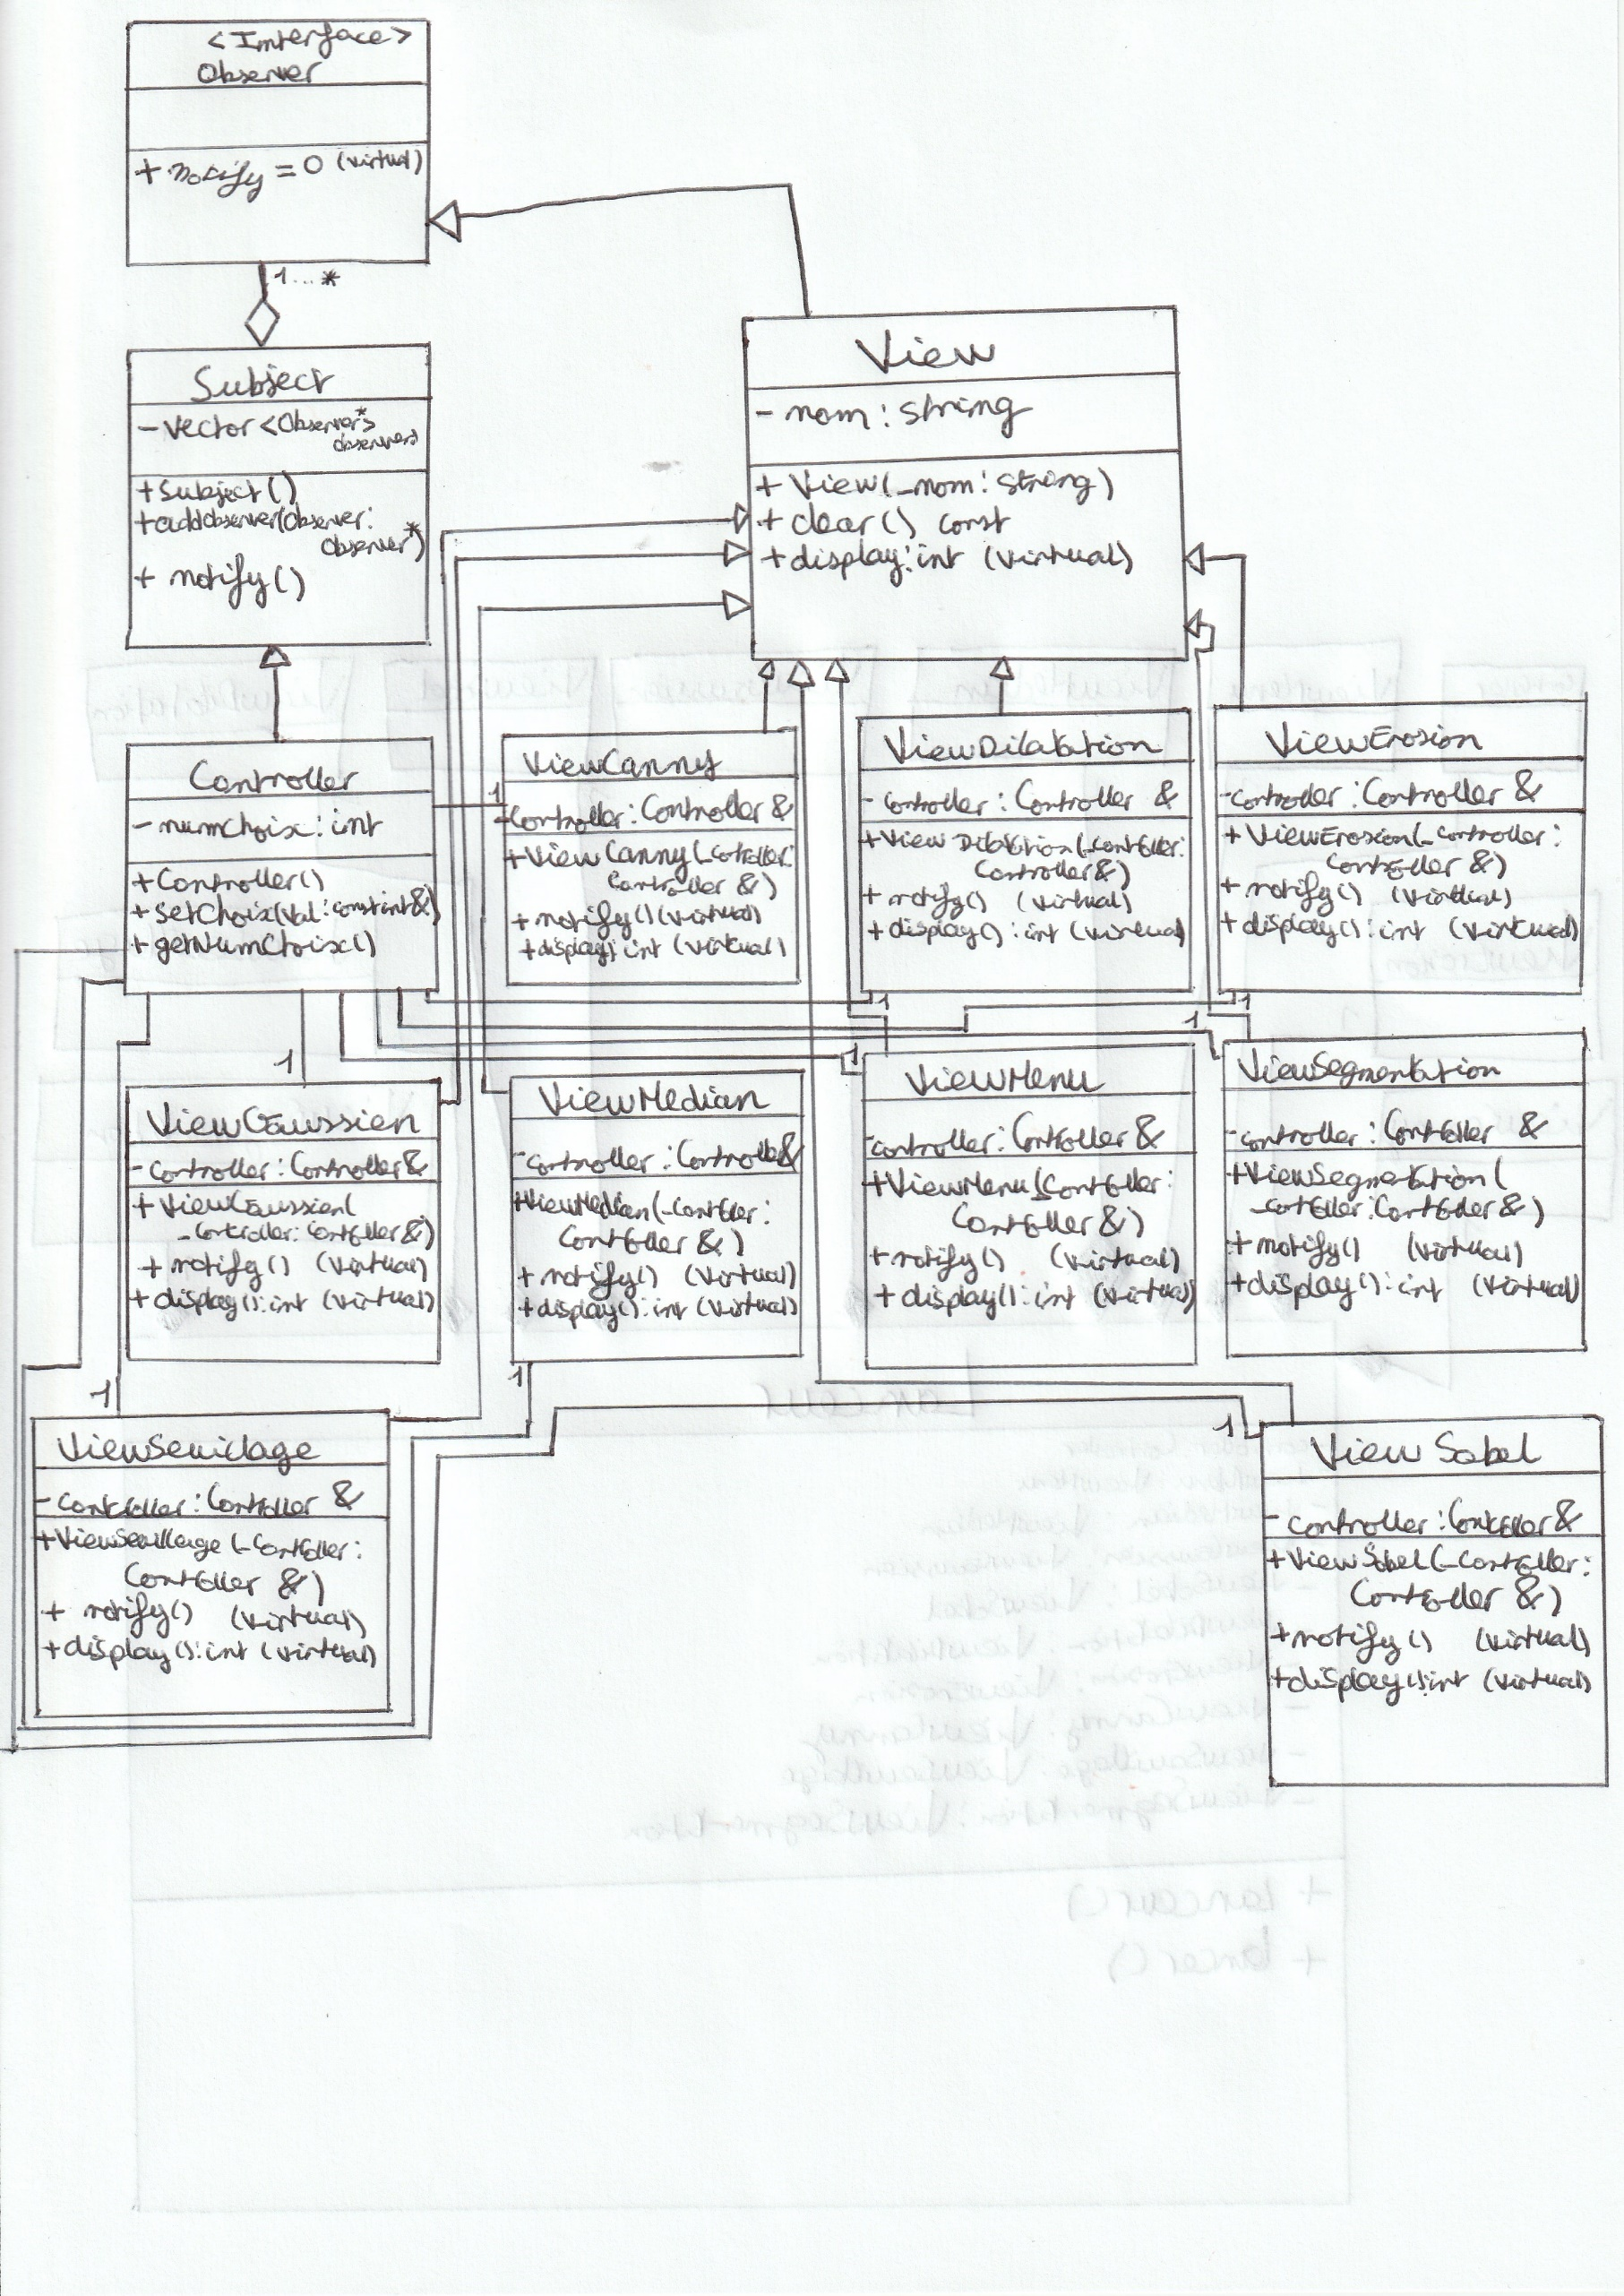 <Interface>
Observer
+ notify = 0 (virtual)
1...*
Subject
- Vector <Observer*>
observers
+ Subject()
+ addObserver(Observer:
Observer*)
+ notify()
View
- nom : string
+ View(_nom : string)
+ clear() const
+ display : int (virtual)
Controller
- numChoix : int
+ Controller()
+ setChoix(val : const int &)
+ getNumChoix()
1
ViewCanny
- controller : Controller &
+ ViewCanny(_controller :
Controller &)
+ notify() (virtual)
+ display() : int (virtual)
ViewDilatation
- controller : Controller &
+ ViewDilatation(_controller :
Controller &)
+ notify() (virtual)
+ display() : int (virtual)
1
ViewErosion
- controller : Controller &
+ ViewErosion(_controller :
Controller &)
+ notify() (virtual)
+ display() : int (virtual)
1
1
ViewGaussien
- controller : Controller &
+ ViewGaussien(
_controller : Controller &)
+ notify() (virtual)
+ display() : int (virtual)
ViewMedian
- controller : Controller &
+ ViewMedian(_controller :
Controller &)
+ notify() (virtual)
+ display() : int (virtual)
1
1
ViewMenu
- controller : Controller &
+ ViewMenu(_controller :
Controller &)
+ notify() (virtual)
+ display() : int (virtual)
1
ViewSegmentation
- controller : Controller &
+ ViewSegmentation(
_controller : Controller &)
+ notify() (virtual)
+ display() : int (virtual)
1
ViewSeuillage
- controller : Controller &
+ ViewSeuillage(_controller :
Controller &)
+ notify() (virtual)
+ display() : int (virtual)
1
View Sobel
- controller : Controller &
+ View Sobel(_controller :
Controller &)
+ notify() (virtual)
+ display() : int (virtual)